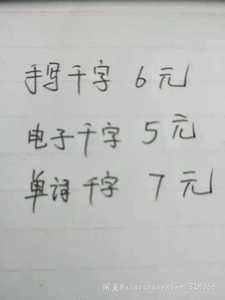 手写千字 6元
电子千字 5元
单词千字 7元